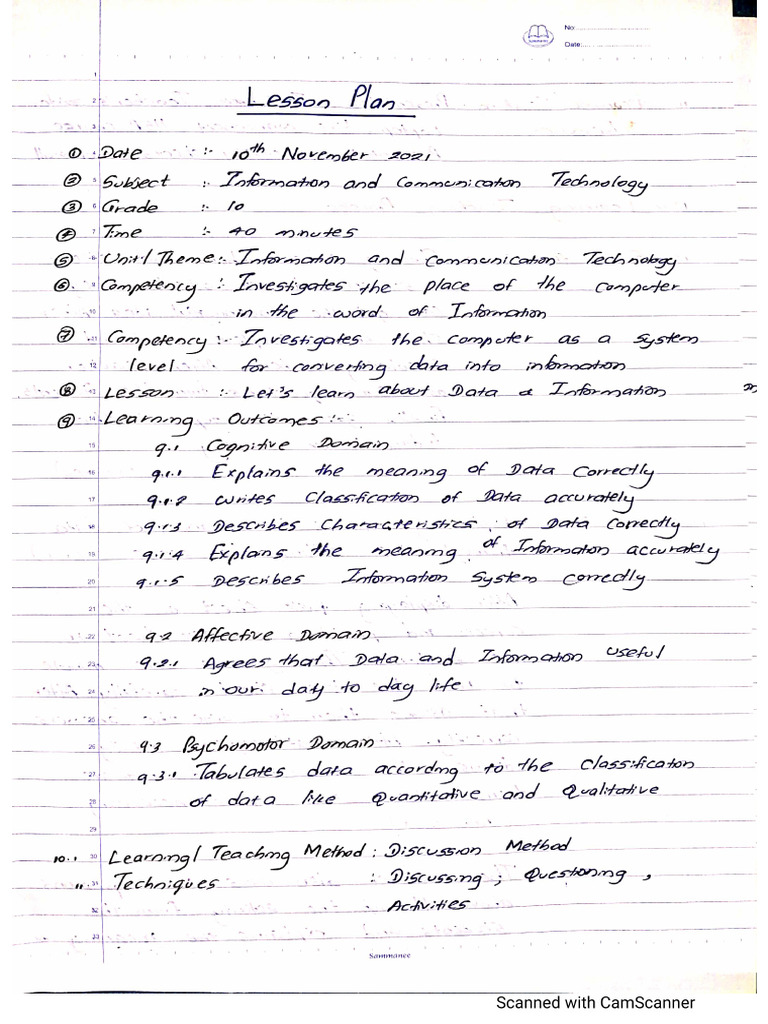 No:
Date:
1
2 Lesson Plan
3
① 4 Date :- 10th November 2021
② 5 Subject :- Information and Communication Technology
③ 6 Grade :- 10
④ 7 Time :- 40 minutes
⑤ 8 Unit/Theme:- Information and Communication Technology
⑥ 9 Competency :- Investigates the place of the computer
10 in the word of Information
⑦ 11 Competency :- Investigates the computer as a system
12 level for converting data into information
⑧ 13 Lesson :- Let's learn about Data & Information
⑨ 14 Learning Outcomes :-
15 9.1 Cognitive Domain
16 9.1.1 Explains the meaning of Data Correctly
17 9.1.2 Writes Classification of Data accurately
18 9.1.3 Describes Characteristics of Data Correctly
19 9.1.4 Explains the meaning of Information accurately
20 9.1.5 Describes Information System correctly
21
22 9.2 Affective Domain
23 9.2.1 Agrees that Data and Information useful
24 in our day to day life
25
26 9.3 Psychomotor Domain
27 9.3.1 Tabulates data according to the Classification
28 of data like Quantitative and Qualitative
29
10. 30 Learning/Teaching Method : Discussion Method
11. 31 Techniques : Discussing, Questioning,
32 Activities
33
Sammanee
Scanned with CamScanner